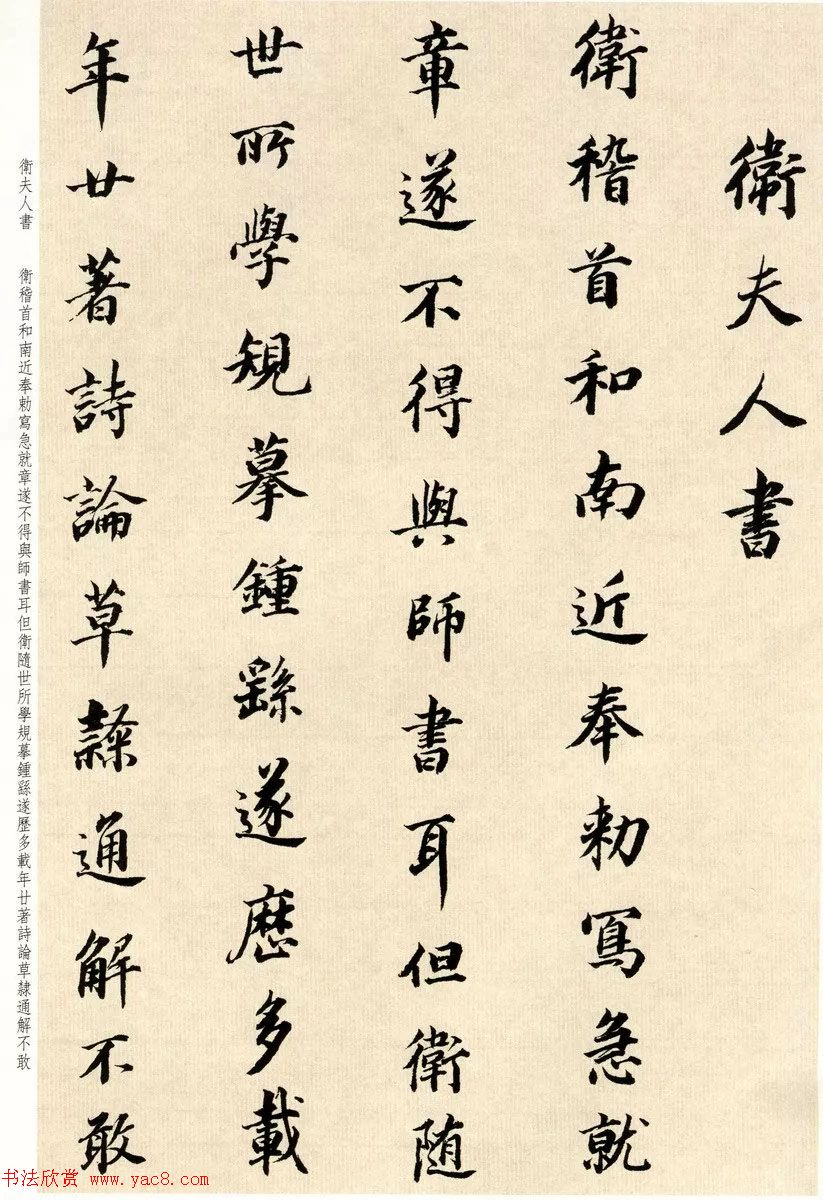 衛夫人書
衛稽首和南近奉勅寫急就
章遂不得與師書耳但衛随
世所學規摹鍾繇遂歷多載
年廿著詩論草隷通解不敢
衛夫人書　衛稽首和南近奉勅寫急就章遂不得與師書耳但衛隨世所學規摹鍾繇遂歷多載年廿著詩論草隸通解不敢
书法欣赏 www.yac8.com